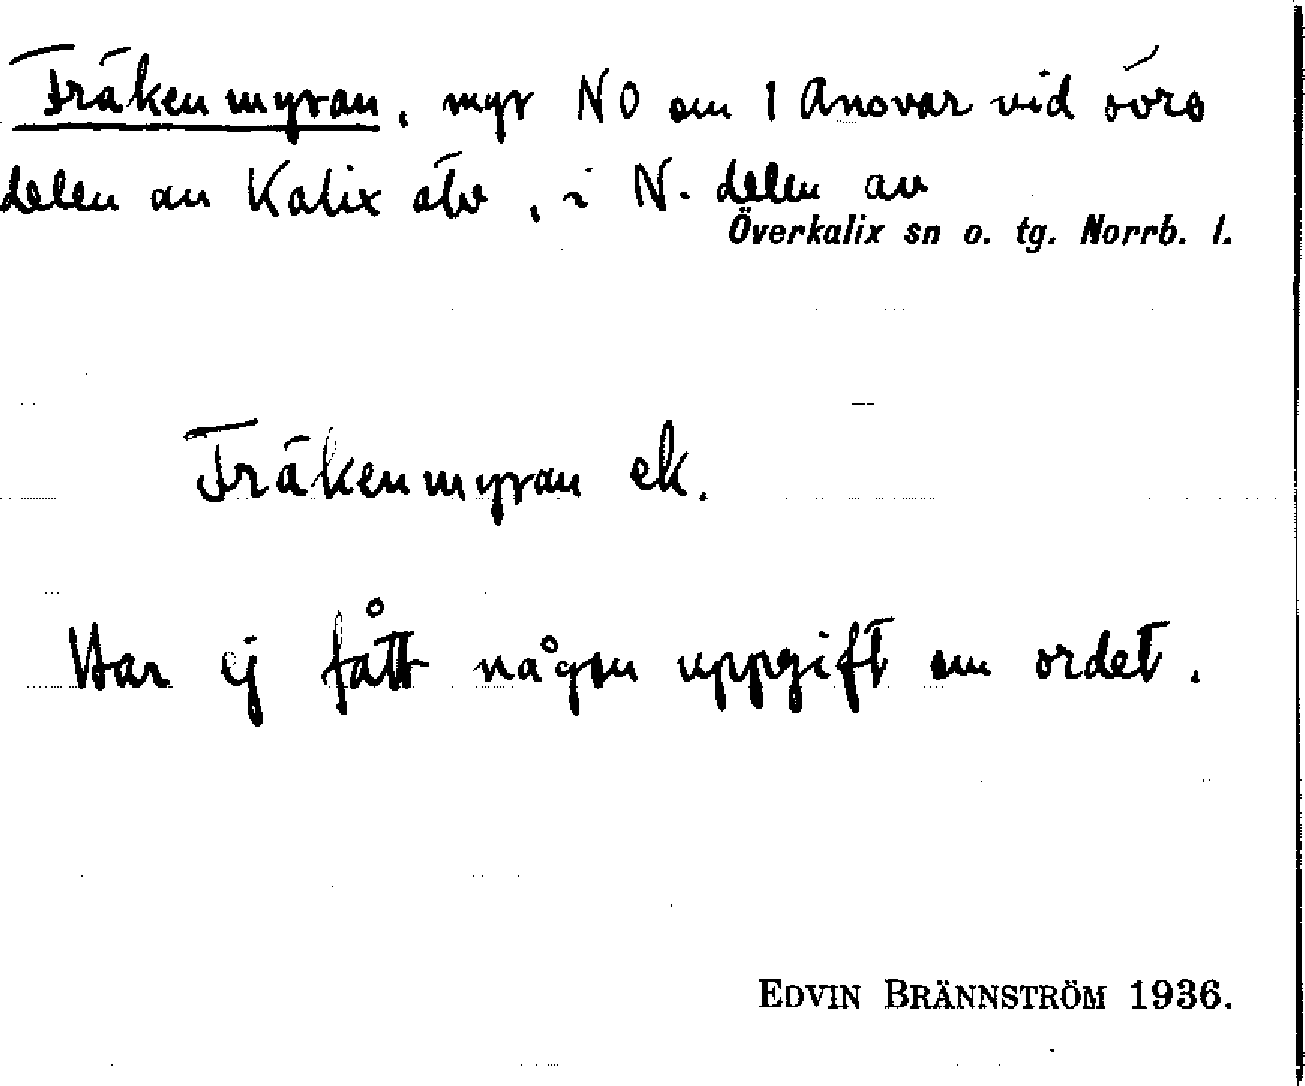 Fräkenmyran, myr NO om 1 Ansvar vid övre
delen av Kalix älv, i N. delen av
Överkalix sn o. tg. Norrb. l.
Fräkenmyran ek.
Har ej fått någon uppgift om ordet.
EDVIN BRÄNNSTRÖM 1936.